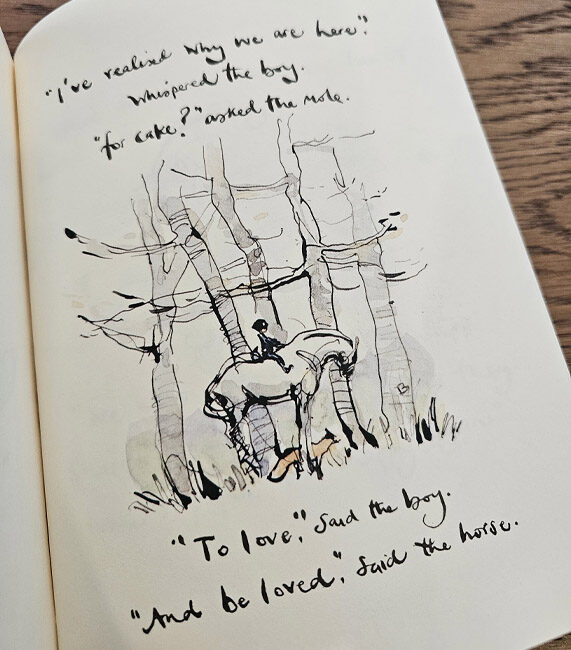 "I've realised why we are here".
whispered the boy.
"for cake?" asked the mole.
B
"To love", said the boy.
"And be loved", said the horse.